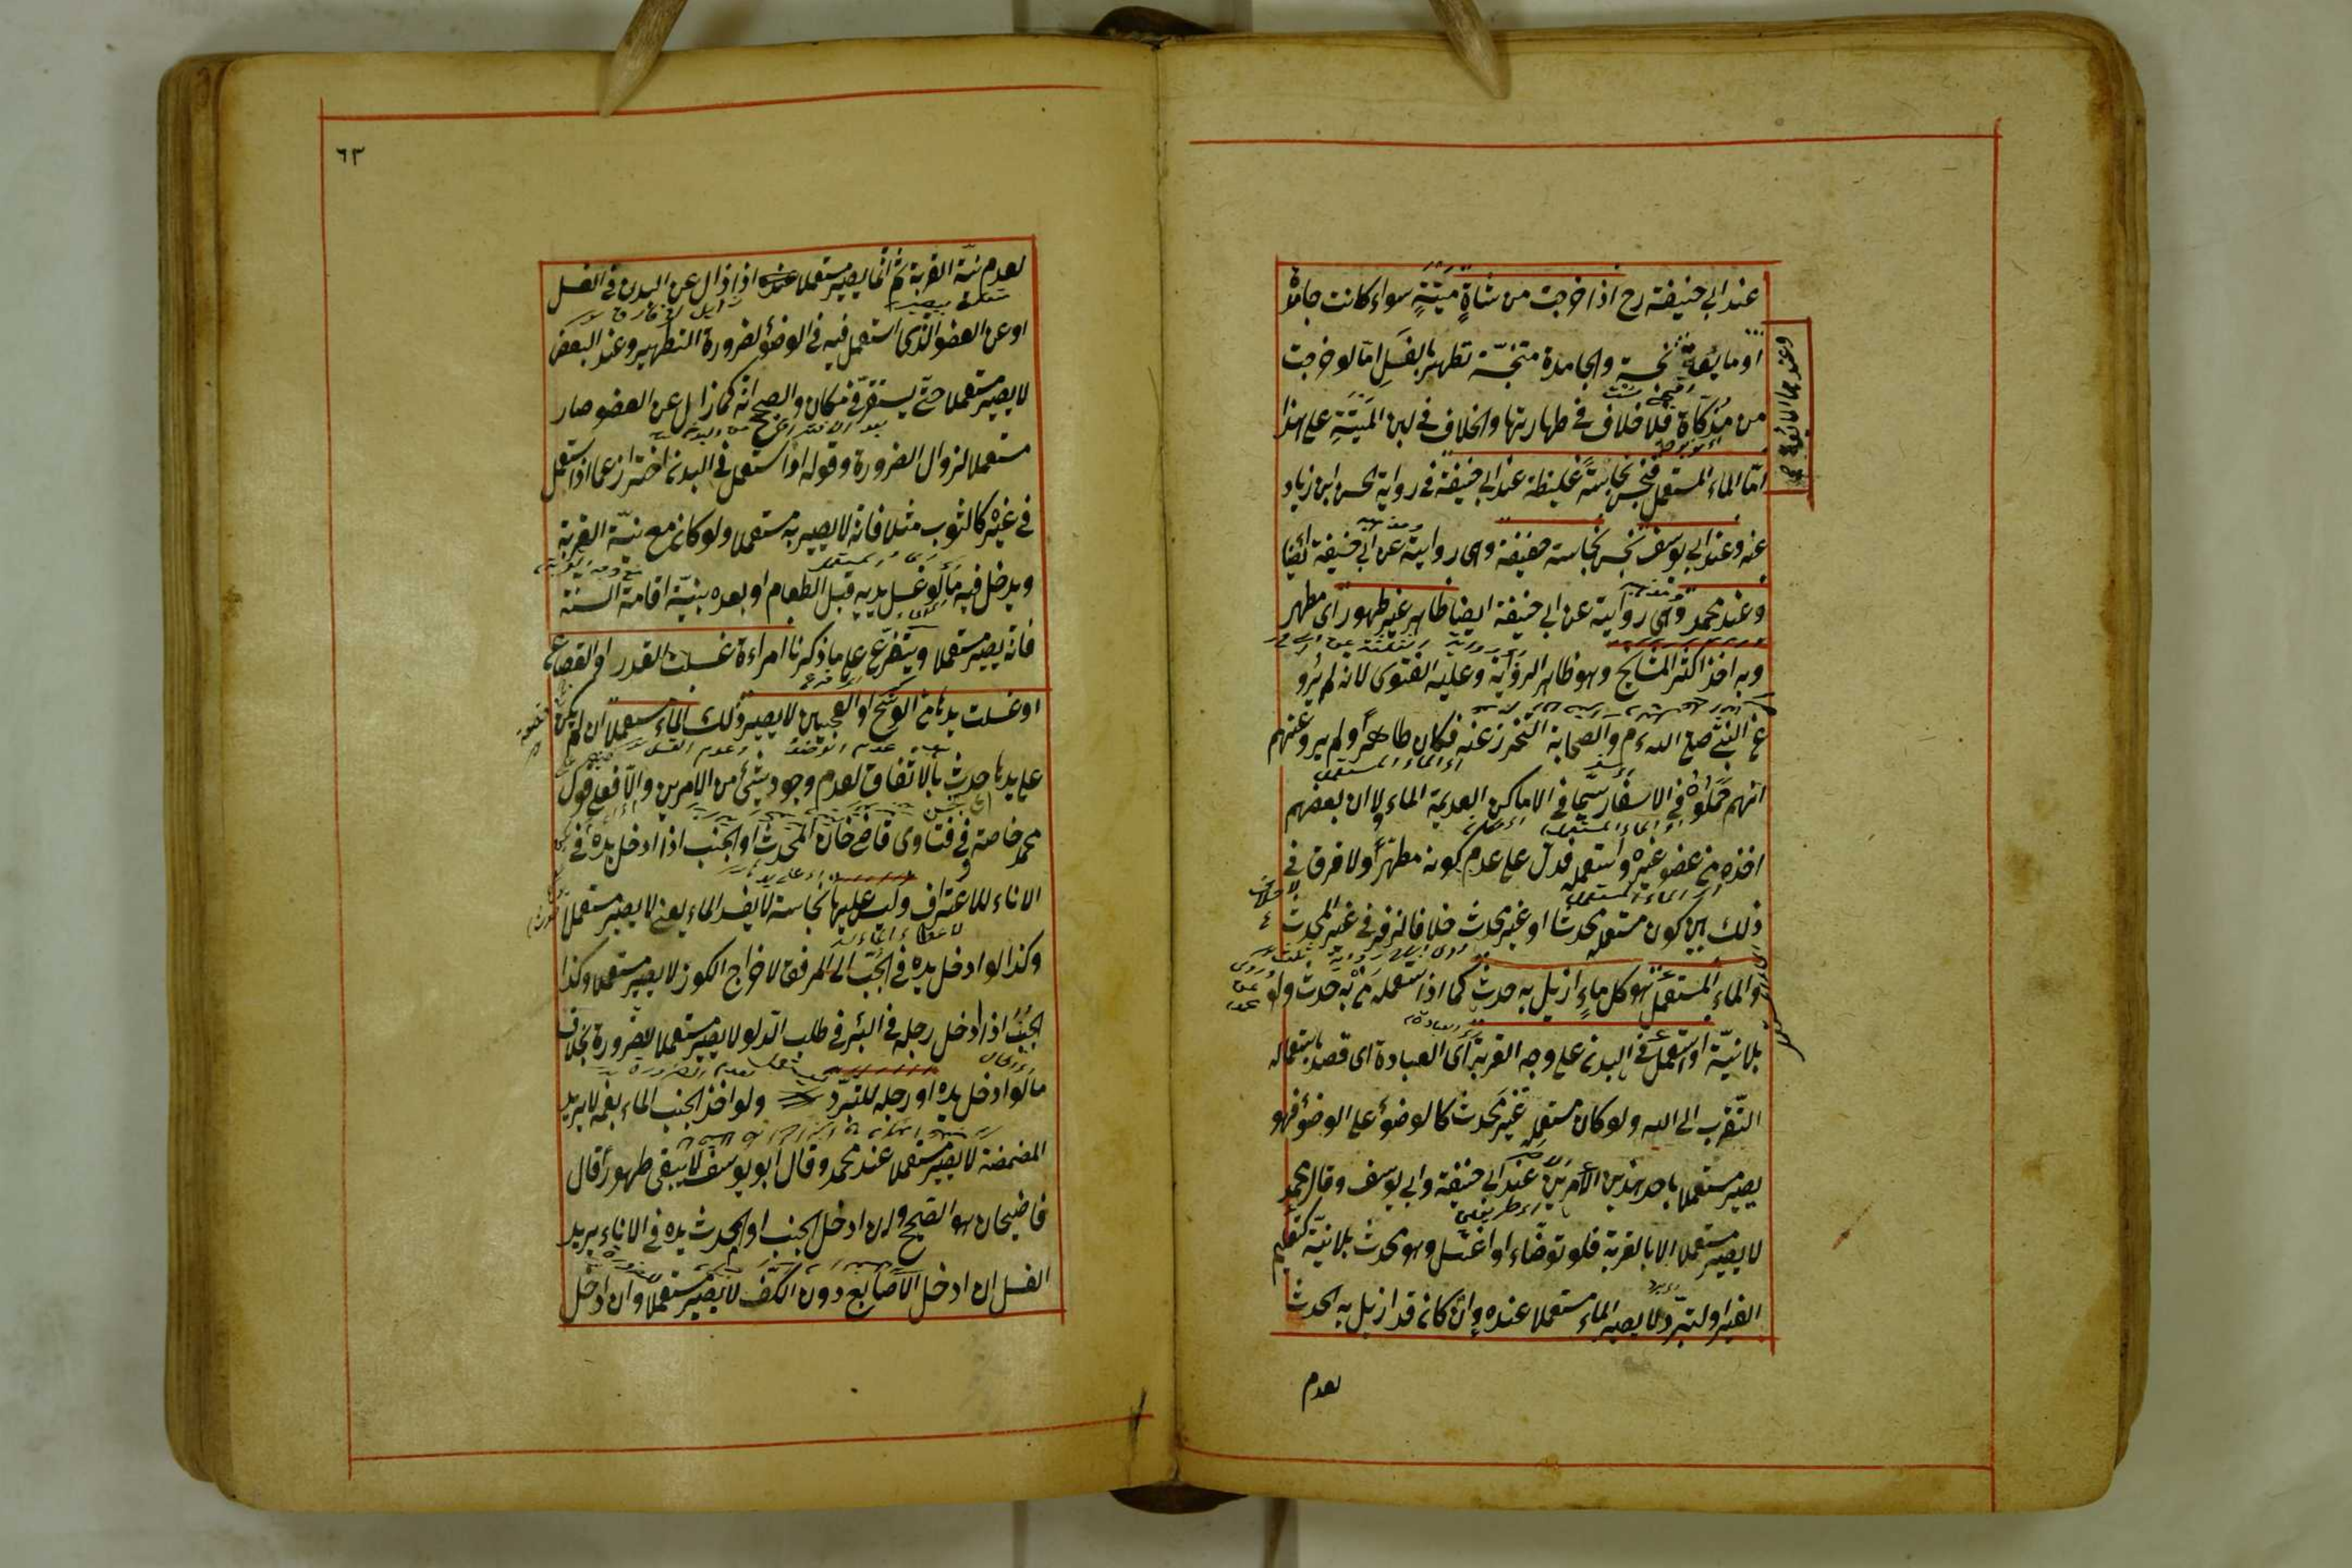 عند ابي حنيفة رح اذا خرجت من شاة ميتة سواء كانت جامدة
او مايعة نجسة والجامدة متنجسة تطهر بالغسل اما لو خرجت
وعندهما المايعة
من مذكاة فلا خلاف في طهارتها والخلاف في لبن الميتة على هذا
اما الماء المستعمل فنجس نجاسة غليظة عند ابي حنيفة في رواية الحسن ابن زياد
عنه وعند ابي يوسف نجس نجاسة خفيفة وهى رواية عن ابي حنيفة ايضا
وعند محمد وهى رواية عن ابي حنيفة ايضا طاهر غير طهور اى مطهر
وبه اخذ اكثر المشايخ وهو ظاهر الرواية وعليه الفتوى لانه لم يرو
عن النبي صلع الله ءم والصحابة التحرز عنه فكان طاهرا ولم يرو عنهم
انهم حملوه في الاسفار سيما في الاماكن العديمة الماء ولا ان بعضهم
اى الماء المستعمل
اخذه من عضو غيره واستعمله فدل على عدم كونه مطهرا ولا فرق في
اى الماء المستعمل
ذلك بين كون مستعمله محدثا او غير محدث خلافا لزفر في غير المحدث
والماء المستعمل هو كل ماء ازيل به حدث كما اذا استعمله من به حدث ولو
بلا نية او استعمل في البدن على وجه القربة اى العبادة اى قصد باستعماله
التقرب الى الله ولو كان مستعمله غير محدث كالوضوء على الوضوء فهو
يصير مستعملا باحد هذين الامرين عند ابي حنيفة وابي يوسف وقال محمد
لا يصير مستعملا الا بالقربة فلو توضاء او اغتسل وهو محدث بلا نية كتعليم
الغير او لتبرد لا يصير الماء مستعملا عنده وان كان قد ازيل به الحدث
لعدم
٦٣
لعدم نية القربة ثم انما يصير مستعملا عنده اذا زال عن البدن في الغسل
او عن العضو الذى استعمل فيه في الوضوء لضرورة التطهير وعند البعض
لا يصير مستعملا حتى يستقر في مكان والصحيح انه كما زايل عن العضو صار
مستعملا لزوال الضرورة وقوله او استعمل في البدن احتراز عما اذا استعمل
في غيره كالثوب مثلا فانه لا يصير به مستعملا ولو كان مع نية القربة
ويدخل فيه ما لو غسل يديه قبل الطعام او بعده بنية اقامة السنة
فانه يصير مستعملا ويتفرع على ما ذكرنا امراءة غسلت القدر او القصاع
او غسلت يدها من الوسخ او العجين لا يصير ذلك الماء مستعملا ان لم يكن
على يدها حدث بالاتفاق لعدم وجود شئ من الامرين والا فعلى قول
محمد خاصة وفي فتاوى قاضى خان المحدث او الجنب اذا ادخل يده في
الاناء للاغتراف وليس عليها نجاسة لا يفسد الماء يعنى لا يصير مستعملا
وكذا لو ادخل يده في الجب الى المرفق لاخراج الكوز لا يصير مستعملا وكذا
الجنب اذا ادخل رجله في البئر في طلب الدلو لا يصير مستعملا للضرورة بخلاف
ما لو ادخل يده او رجله للتبرد ولو اخذ الجنب الماء بفمه لا يريد
المضمضة لا يصير مستعملا عند محمد وقال ابو يوسف لا يبقى طهورا قال
قاضيخان هو الصحيح وان ادخل الجنب او المحدث يده في الاناء يريد
الغسل ان ادخل الاصابع دون الكف لا يصير مستعملا وان ادخل